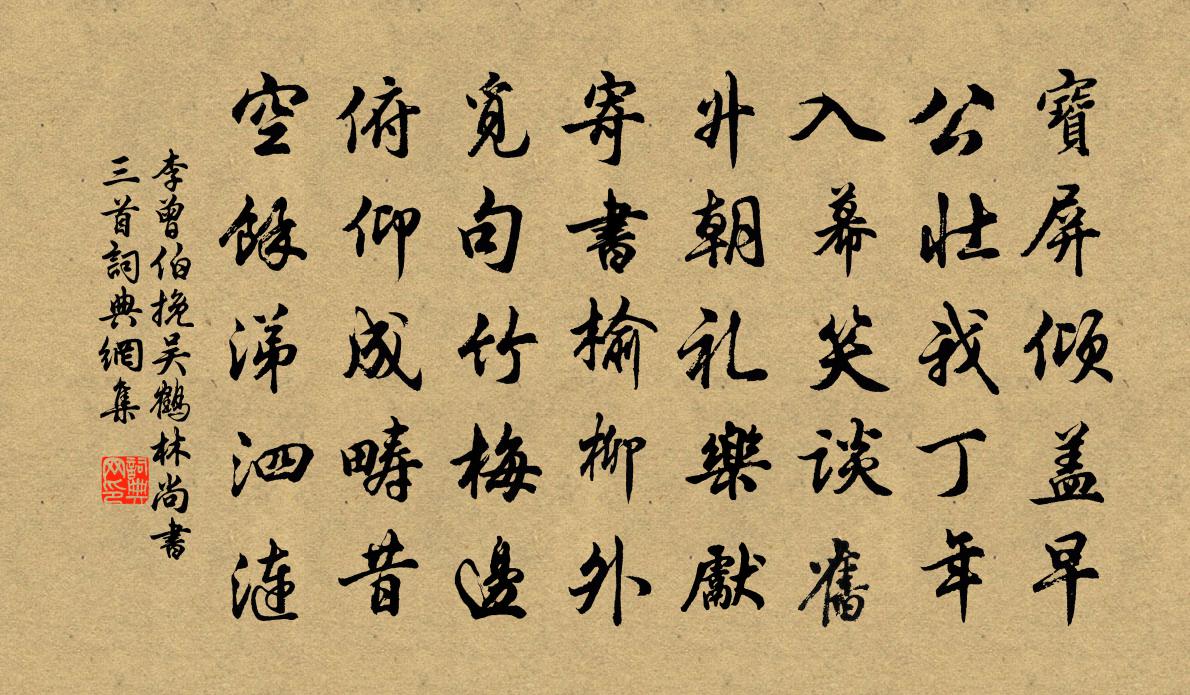 寶屏傾盖早
公壯我丁年
入幕笑談舊
升朝礼樂獻
寄書榆柳外
覓句竹梅邊
俯仰成疇昔
空餘涕泗漣
李曾伯挽吴鶴林尚書
三首詞典網集
詞典网印